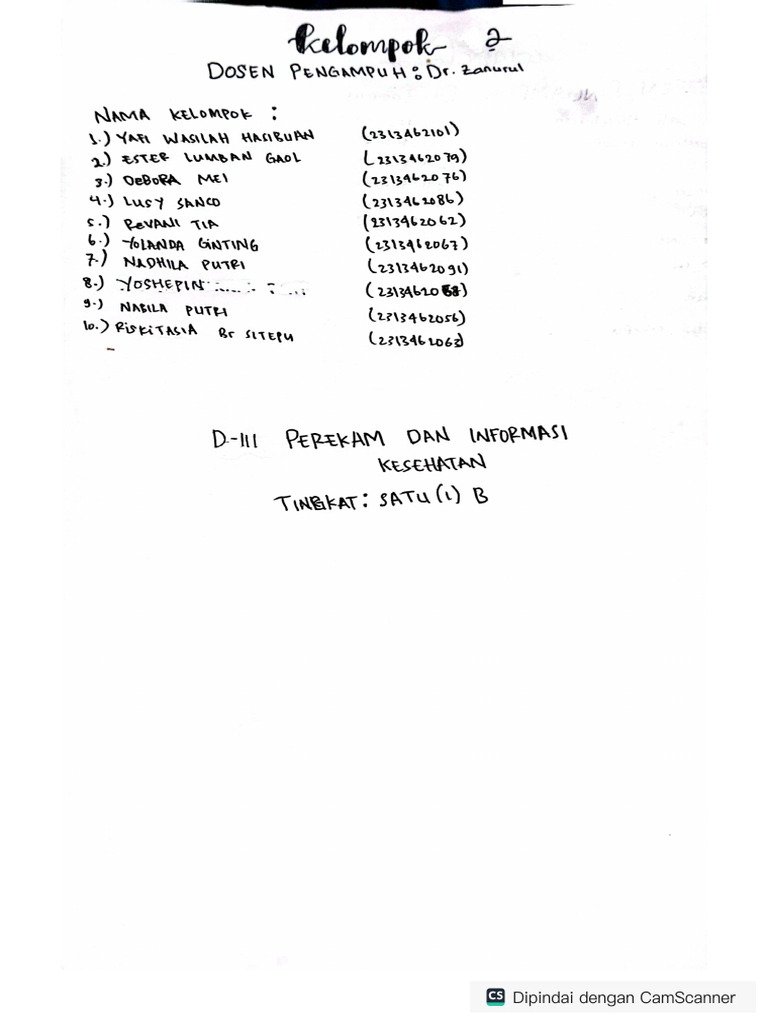 Kelompok 2
DOSEN PENGAMPUH : Dr. Zanurul
NAMA KELOMPOK :
1.) YAFI WASILAH HASIBUAN (2313462101)
2.) ESTER LUMBAN GAOL (2313462079)
3.) DEBORA MEI (2313462076)
4.) LUSY SANCO (2313462086)
5.) REVANI TIA (2313462062)
6.) YOLANDA GINTING (2313462067)
7.) NADHILA PUTRI (2313462091)
8.) YOSHEPIN
9.) NABILA PUTRI (2313462056)
10.) RISKITASIA Br SITEPU (2313462063)
D-III PEREKAM DAN INFORMASI
KESEHATAN
TINGKAT : SATU (1) B
CS Dipindai dengan CamScanner